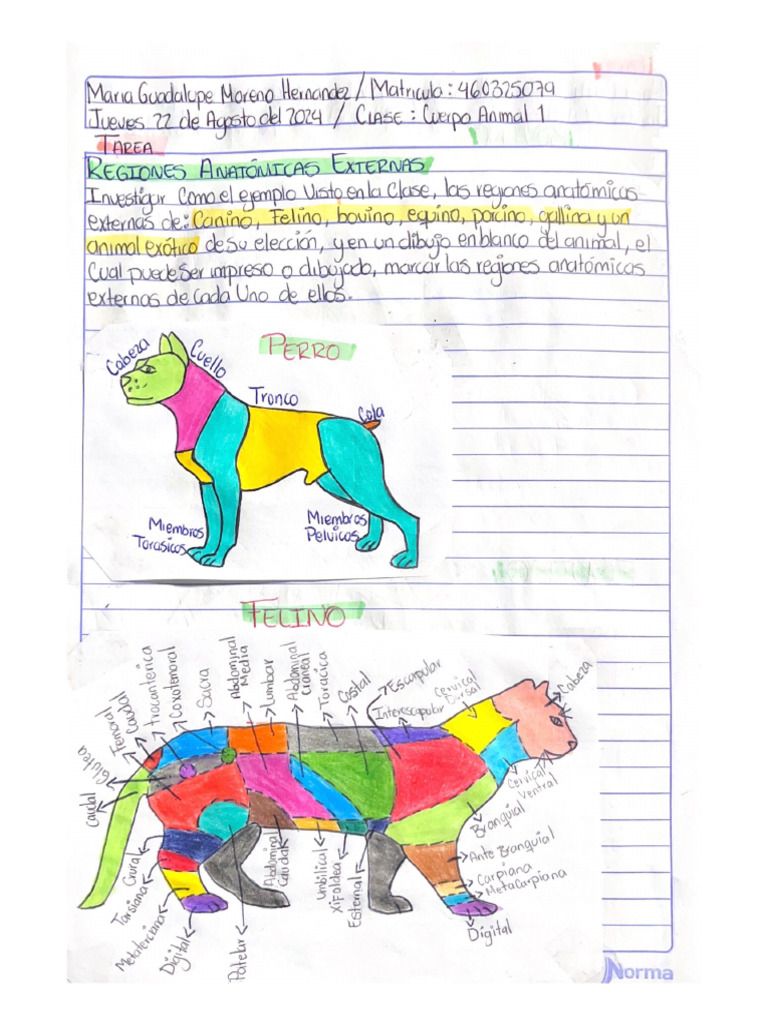 Maria Guadalupe Moreno Hernandez / Matricula: 460325079
Jueves 22 de Agosto del 2024 / Clase: Cuerpo Animal 1
TAREA
REGIONES ANATÓMICAS EXTERNAS
Investigar como el ejemplo visto en la clase, las regiones anatómicas
externas de: Canino, Felino, bovino, equino, porcino, gallina y un
animal exótico de su elección, y en un dibujo en blanco del animal, el
cual puede ser impreso o dibujado, marcar las regiones anatómicas
externas de cada uno de ellos.
PERRO
Cabeza
Cuello
Tronco
Cola
Miembros
Torasicos
Miembros
Pelvicos
FELINO
Caudal
Glutea
Femoral
Caudal
Trocanterica
Coxofemoral
Sacra
Abdominal
Media
Lumbar
Abdominal
Craneal
Toracica
Costal
Escarpular
Interescapular
Cervical
Dorsal
Cabeza
Cervical
Ventral
Branquial
Ante Branquial
Carpiana
Metacarpiana
Digital
Crural
Tarsiana
Digital
Patelar
Abdominal
Caudal
Umbilical
Xifoidea
Esternal
Norma